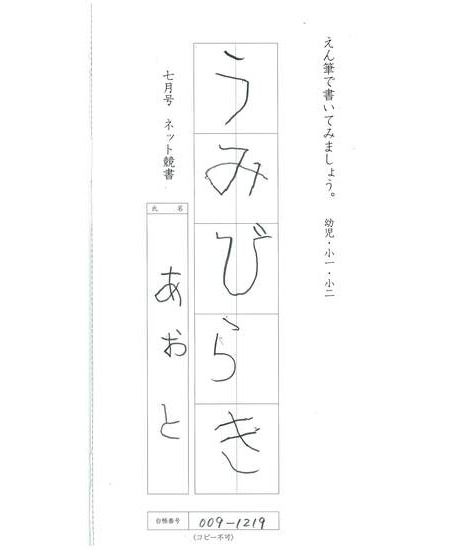 えん筆で書いてみましょう。 幼児・小一・小二
うみびらき
七月号 ネット競書
氏名
あおと
台帳番号 009-1219
(コピー不可)